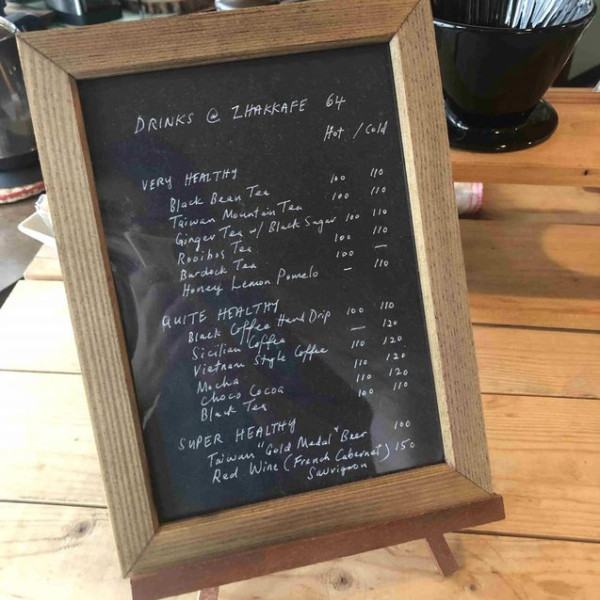 DRINKS @ ZHAKKAFE 64
Hot / Cold
VERY HEALTHY
Black Bean Tea 100 110
Taiwan Mountain Tea 100 110
Ginger Tea w/ Black Sugar 100 110
Rooibos Tea 100 110
Burdock Tea 100 —
Honey Lemon Pomelo — 110
QUITE HEALTHY
Black Coffee Hand Drip 100 110
Sicilian Coffee — 120
Vietnam Style Coffee 110 120
Mocha 110 120
Choco Cocoa 110 120
Black Tea 100 110
SUPER HEALTHY
Taiwan "Gold Medal" Beer 100
Red Wine (French Cabernet) 150
Sauvignon